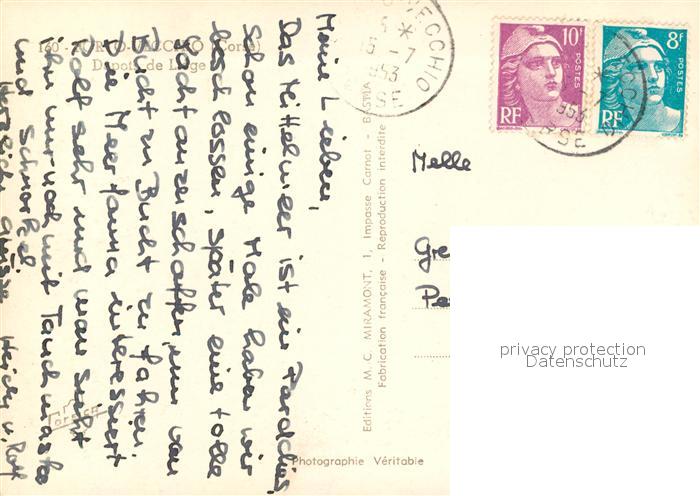 160 - PORTO-VECCHIO (Corse)
Dépôts de Liège
Meine Lieben,
Das Mittelmeer ist ein Paradies.
Schon einige Male haben wir
beschlossen, später eine tolle
Yacht anzuschaffen, um von
Bucht zu Bucht zu fahren.
Die Meerfauna interessiert
Rolf sehr und man sieht
ihn nur noch mit Tauchmaske
und Schnorchel
Herzliche Grüsse Heidy u. Rolf
Editions M. C. MIRAMONT, 1, Impasse Carnot - BASTIA
Fabrication française - Reproduction interdite
Photographie Véritable
VECCHIO
-7
953
SE
10F
POSTES
RF
8F
POSTES
RF
953
SE
Melle
Gre
Pe
privacy protection
Datenschutz